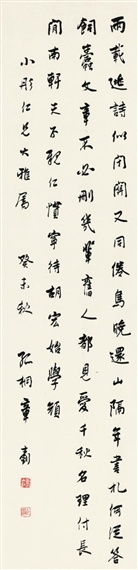 兩載逃詩似閉關又同倦鳥曉還山隔年書札何從答
飼蠹文章不必刪幾輩舊人都見愛千秋名理付長
閒南軒夫子親仁慣寧待胡宏始學顏
小彤仁兄大雅屬 癸未秋 孤桐章釗